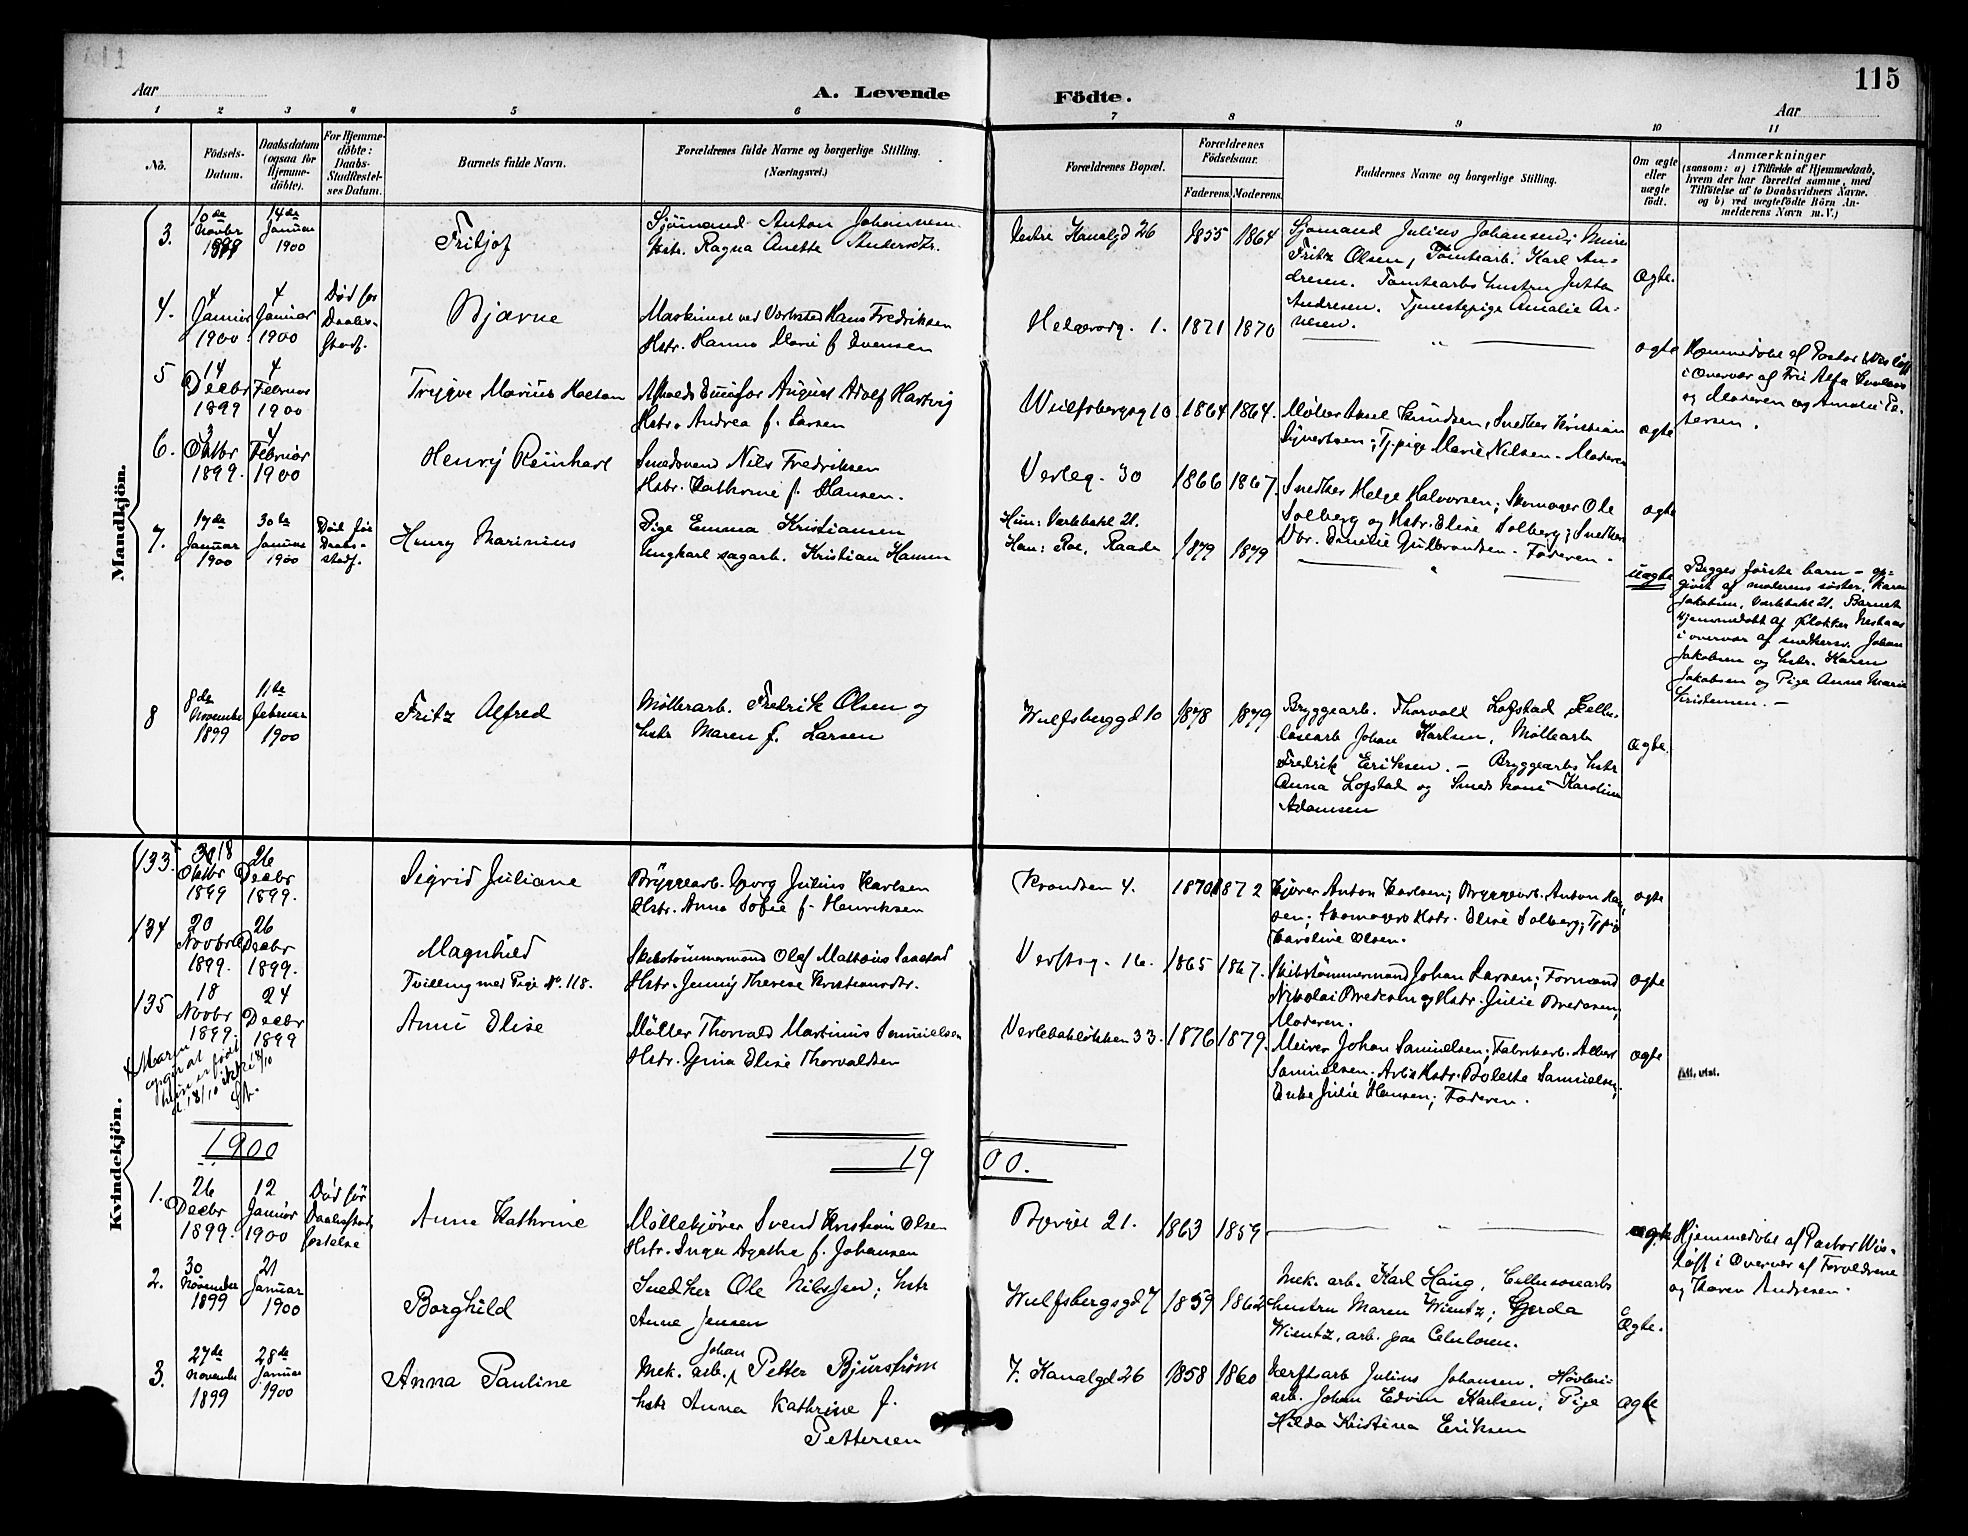 115
Aar
A. Levende
Födte.
Aar
1 2 3 4 5 6 7 8 9 10 11
No.
Födsels-
Datum.
Daabsdatum
(ogsaa for
Hjemme-
döbte).
For Hjemme-
döbte:
Daabs-
Stadfæstel-
ses Datum.
Barnets fulde Navn.
Forældrenes fulde Navne og borgerlige Stilling.
(Næringsvei.)
Forældrenes Bopæl.
Forældrenes
Födselsaar.
Faderens. Moderens.
Faddernes Navne og borgerlige Stilling.
Om ægte
eller
uægte
födt.
Anmærkninger
(saasom: a) i Tilfælde af Hjemmedaab,
hvem der har forrettet samme, med
Tilföielse af to Daabsvidners Navne.
og b) ved uægtefödte Börn An-
melderens Navn m. V.)
Mandkjön.
3.
10de
Novbr
14de
Januar
1900
Fritjof
Sjömand Anton Johannsen
Hstr. Ragna Anette Andersdtr.
Vestre Kanalgd 26
1855 1864
Sjömand Julius Johansen; Murer
Fritz Olsen, Tomtearb. Karl An-
dresen. Tomtearbs hustru Jutta
Andresen. Tjenestepige Amalie Ar-
nesen.
Ægte.
4.
4
Januar
1900
4
Januar
1900
Död för
Daabs-
stadf.
Bjarne
Maskinist ved Værksted Hans Fredriksen
Hstr. Hanna Marie f. Svensen
1. 1871 1870
ægte
Hjemmedöbt af Pastor Wisløff
i Overvær af
og Moderen og Amalie Pe-
tersen.
5
14
Decbr
1899
4
Februar
1900
Trygve Marius
August Adolf Hartvig
Hstr. Andrea f. Larsen
Wulfsbergsg 10 1864 1864.
Møller Aksel Knudsen, Snedker Kristian
Syvertsen; Tj.pige Marie Nilsen - Moderen
ægte
6.
3
Oktbr
1899.
4
Februar
1900
Henry Reinhart
Smedsvend Nils Fredriksen
Hstr. Kathrine f. Hansen.
Verleg. 30
1866 1867.
Snedker Helge Halvorsen; Skomager Ole
Solberg og Hstr. Elise Solberg; Snedker
Gulbrandsen - Faderen.
ægte
7.
17de
Januar
1900
30te
Januar
1900
Död för
Daabs-
stadf.
Henry Marinius
Pige Emma Kristiansen
Ungkarl sagarb. Kristian Hansen
Hun: Værlebakl 21.
Han: Roe, Raade
1879 1879
uægte
Begges første barn - op-
givet af moderens søster, Karen
Jakobsen, Værlebakl 21. Barnet
hjemmedøbt af klokker Nestaas
i overvær af snedkersv. Johan
Jakobsen og hstr. Karen
Jakobsen og Pige Anne Marie
Kristensen. -
8
8de
November
1899
11te
Februar
1900
Fritz Alfred
Møllerarb. Fredrik Olsen og
hstr Maren f. Larsen
Wulfsberggd 10 1878 1879
Bryggearb. Thorvald Lofstad Cellu-
losearb Johan Karlsen, Møllearb
Fredrik Eriksen. - Bryggearbs hstr
Anna Lofstad og Smeds kone Karoline
Adamsen
Ægte.
Kvindekjön.
133.
18
Oktbr
1899
26
Decbr
1899.
Sigrid Juliane
Bryggearb. Georg Julius Karlsen
Hstr. Anna Sofie f. Henriksen
Krondsen 4.
1870 1872
Kjører Anton Karlsen; Bryggearb. Anton Han-
sen; Skomagers Hstr. Elise Solberg; Tj.pi
Karoline Olsen.
ægte
134
20
Novbr
1899.
26
Decbr
1899.
Magnhild
Tvilling med Pige No. 118.
Skibstömmermand Olaf Mathæus
Hstr. Jenny Therese Kristiansdtr.
Verftsg. 16.
1865 1867.
Skibstömmermand Johan Larsen; Formand
Nikolai Bredesen og Hstr. Julie Bredesen,
Moderen.
ægte
135
18
Novbr
1899.
24
Decbr
1899
Anni Elise
Møller Thorvald Martinius Samuelsen
Hstr. Gina Elise Thorvaldsen
Verlebakløkken 33. 1876 1879.
Murer Johan Samuelsen; Fabrikarb. Albert
Samuelsen; Arb's Hstr. Bolette Samuelsen;
Enke Julie Hansen; Faderen.
ægte
Att. utst.
opgir at
hun er födt
18/10 ikke
1900
19 00.
1.
26
Decbr
1899.
12
Januar
1900
Död för
Daabsstad-
fæstelse
Anna Kathrine
Møllekjører Svend Kristian Olsen
Hstr. Inga Agathe f. Johansen
21. 1863 1859
ægte
Hjemmedöbt af Pastor Wis-
løff i Overvær af Forældrene
og Karen Andresen.
2.
30
November
1899
21
Januar
1900
Borghild
Snedker Ole Nilssen; hstr
Anne Jensen
Wulfsbergsgd 7 1859 1862
Mek. arb. Karl Haug, Cellulosearbs
hustru Maren Wientz; Gerda
Wientz, arb. paa Celulosen.
Ægte.
3.
27de
November
1899
28de
Januar
1900
Anna Pauline
Johan
Mek. arb. Petter Bjurstrøm
hstr Anna Kathrine f.
Pettersen
V. Kanalgd 26 1858 1860
Værftsarb Julius Johansen. Høvleri-
arb. Johan Edvin Karlsen; Pige
Hilda Kristina Eriksen
ægte